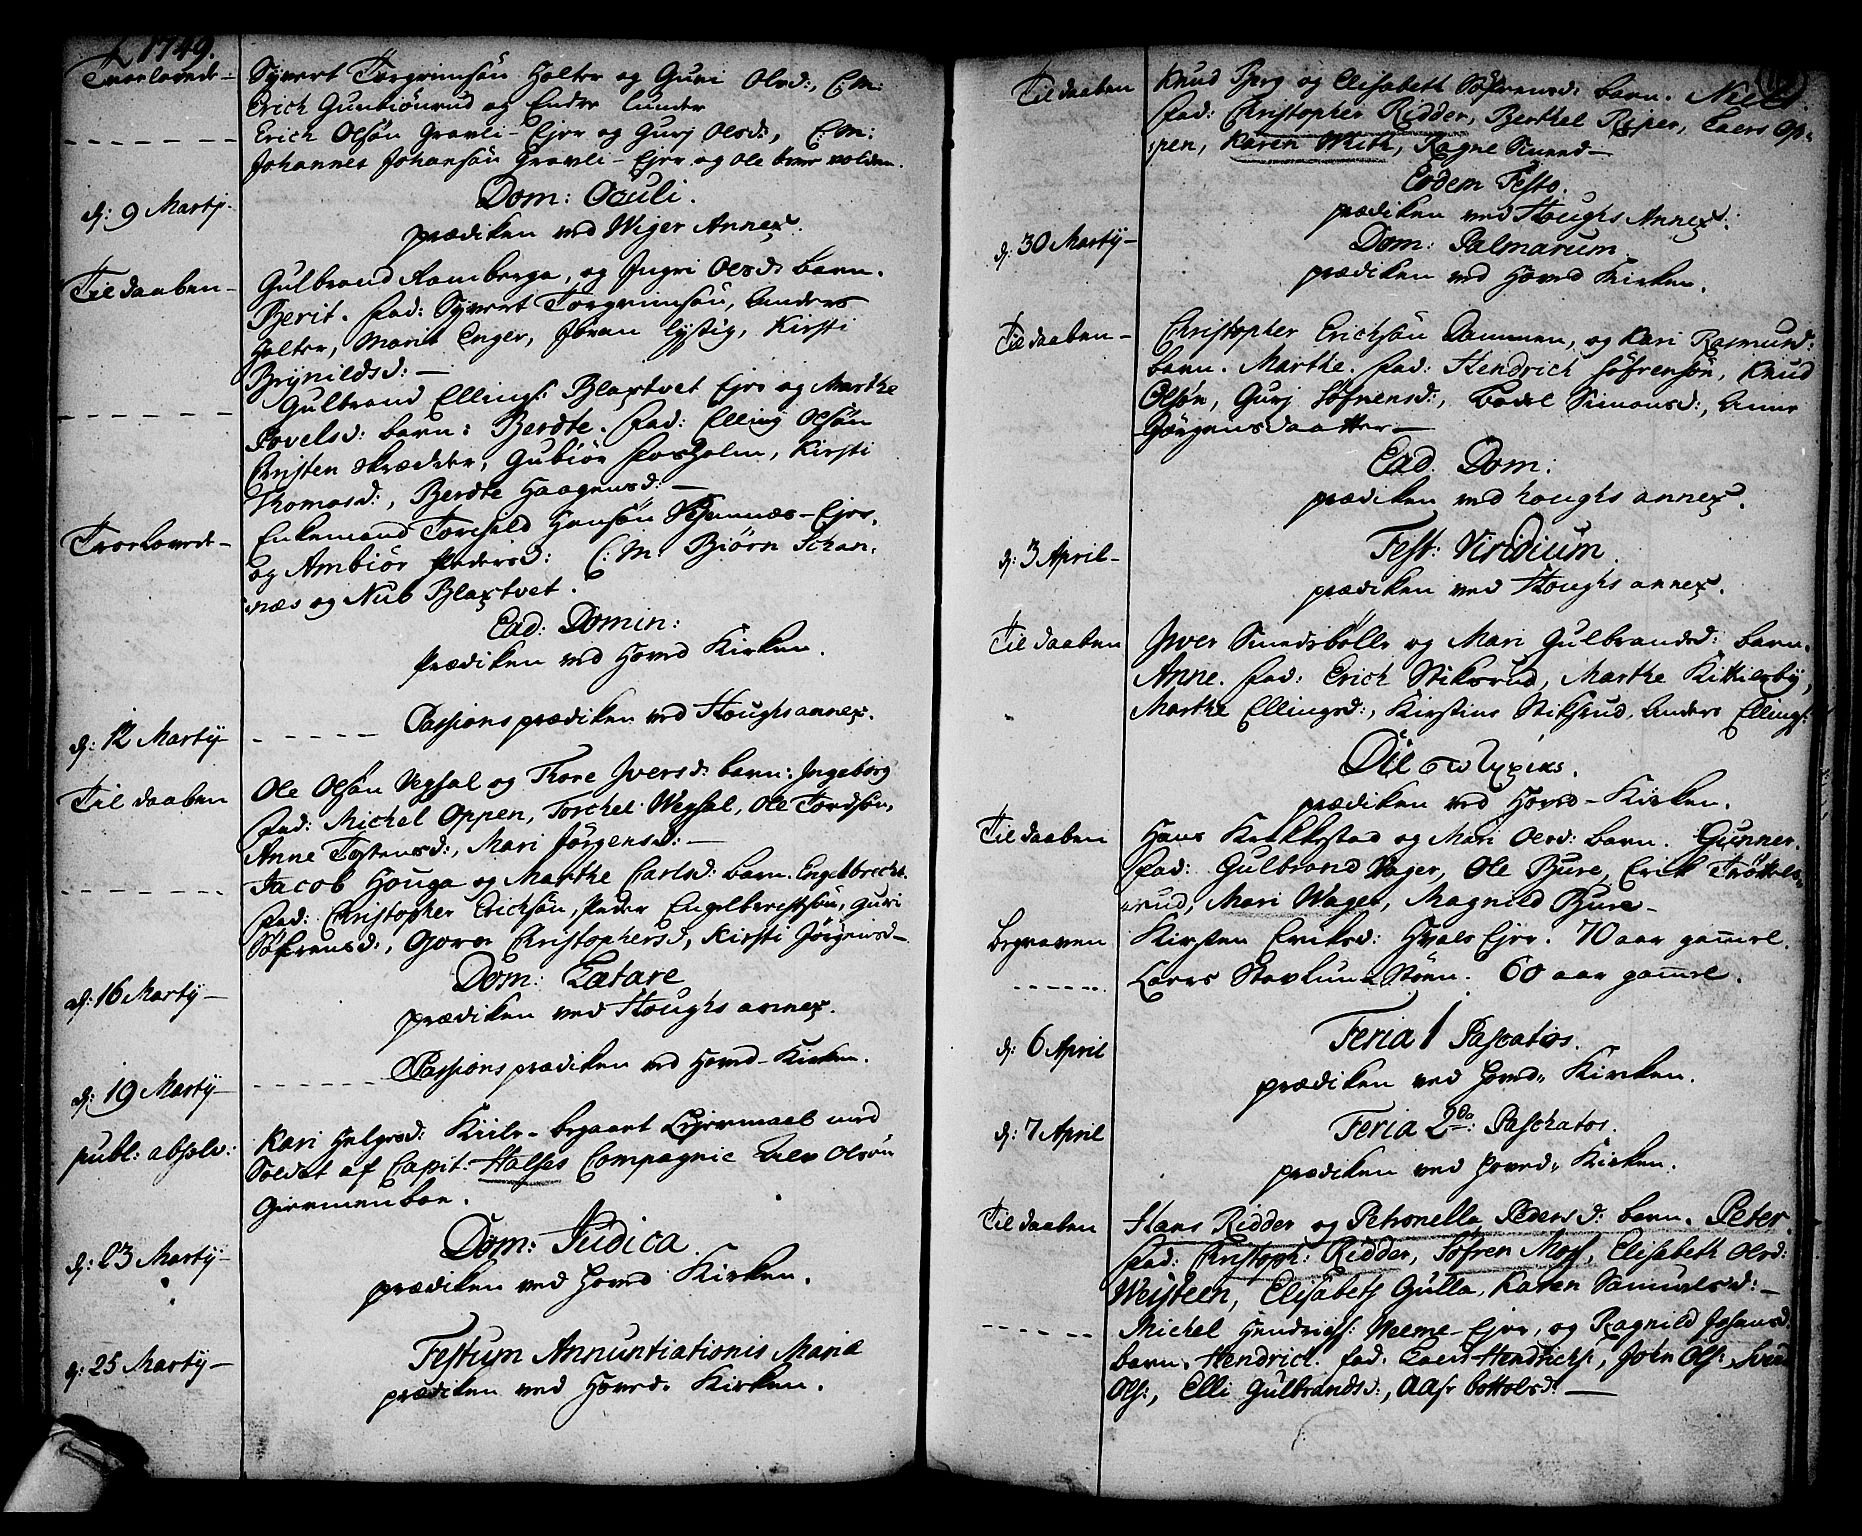 1749.
Trolovede – Syvert Torgrimsön Holter og Guri Olsd:, C:M:
Erich Gunbiönrud og Ender Lunder
Erich Olsön Gravli-Ejer og Gurj Olsd:, C:M:
Johannes Johansön Gravli-Ejer og Ole
d: 9 Martij. Dom: Oculi.
prædiken ved Wiger Annex.
Til daaben – Gulbrand Ramberga, og Ingri Olsd: barn.
Berit. Fad: Syvert Torgrimsön, Anders
Holter, Marit Enger, Jöran Lystig, Kirsti
Brynildsd: –
Gulbrand Ellings: Blaxtvet Ejer og Marthe
Povelsd: barn: Berdte. Fad: Elling Olsön
Christen Skrædder, Gubiör Fosholm, Kirsti
Thomasd:, Berdte Haagensd: –
Trolovede – Enkemand Torchild Hansön Skinnæs-Ejer,
og Ambiör Pedersd: C:M: Biörn Schin,
næs og Nub Blaxtvet.
Ead: Domin:
Prædiken ved Hoved Kirken.
d: 12 Martij Passions prædiken ved Houghs annex.
Til daaben Ole Olsön Vegsal og Thore Iversd: barn: Ingeborg
Fad: Michel Oppen, Torchel Wegsal, Ole Tordsön,
Anne Tostensd:, Mari Jörgensd: –
Jacob Houga og Marthe Carlsd: barn. Engelbrecht.
Fad: Christopher Erichsön, Peder Engelbrechtsön, Guri
Söfrensd:, Gjora Christophersd, Kirsti Jörgensd –
d: 16 Martij – Dom: Lætare
prædiken ved Houghs annex.
d: 19 Martij – Passions prædiken ved Hoved-Kirken.
publ: absolv: Kari Helgesd: Kiile – begaaet Lejermaal med
Soldat af Capit: Halses Compagnie Ole Olsön
Giermenboe.
d: 23 Martij – Dom: Judica.
prædiken ved Hoved Kirken.
d: 25 Martij – Festum Annuntiationis Mariæ
prædiken ved Hoved Kirken.
Til daaben Knud Berg og Elisabeth Söfrensd: barn. Niels.
Fad: Christopher Ridder, Berthel Riper, Laers Op-
pen, Karen With, Ragne Smed –
Eodem Festo.
prædiken ved Houghs Annex:
d: 30 Martij – Dom: Palmarum.
prædiken ved Hoved Kirken.
Til daaben – Christopher Erichsön Dammen, og Kari Rasmusd:
barn. Marthe. Fad: Hendrich Söfrensön, Knud
Olsön, Gurj Söfrensd:, Bodel Simonsd:, Anne
Jörgensdaatter –
Ead. Dom:
prædiken ved houghs annex.
d: 3 April – Fest: Viridium.
prædiken ved Houghs annex.
Til daaben Iver Smedsbölle og Mari Gulbrandsd: barn.
Anne. Fad: Erich Stiksrud, Marthe Kittilsby,
Marthe Ellingsd:, Kirstine Stiksrud, Anders Ellings:
prædiken ved Hoved-Kirken.
Til daaben Hans Krekkestad og Mari Olsd: barn. Gunner.
Fad: Gulbrand Vager, Ole Bure, Erik Tröttels-
rud, Mari Wager, Magnild Bure –
begraven Kirsten Eriksd: Hvals Ejer. 70 aar gamel.
Laers Stavlund Stöen. 60 aar gamel.
d: 6 April Feria 1 Paschatos.
prædiken ved Hoved Kirken.
d: 7 April Feria 2da: Paschatos.
prædiken ved Hoved Kirken.
Til daaben Hans Ridder og Petronella Pedersd: barn. Peter.
Fad: Christoph: Ridder, Söfren Moss, Elisabeth Olsd:
Weisteen, Elisabeth Gulla, Karen Samuelsd: –
Michel Hendrichs: Weeme-Ejer, og Ragnild Johansd:
barn. Hendrich. Fad. Laers Hendrichs:, John Ols:
Ols:, Elli Gulbrandsd:, Aase bottolsd: –